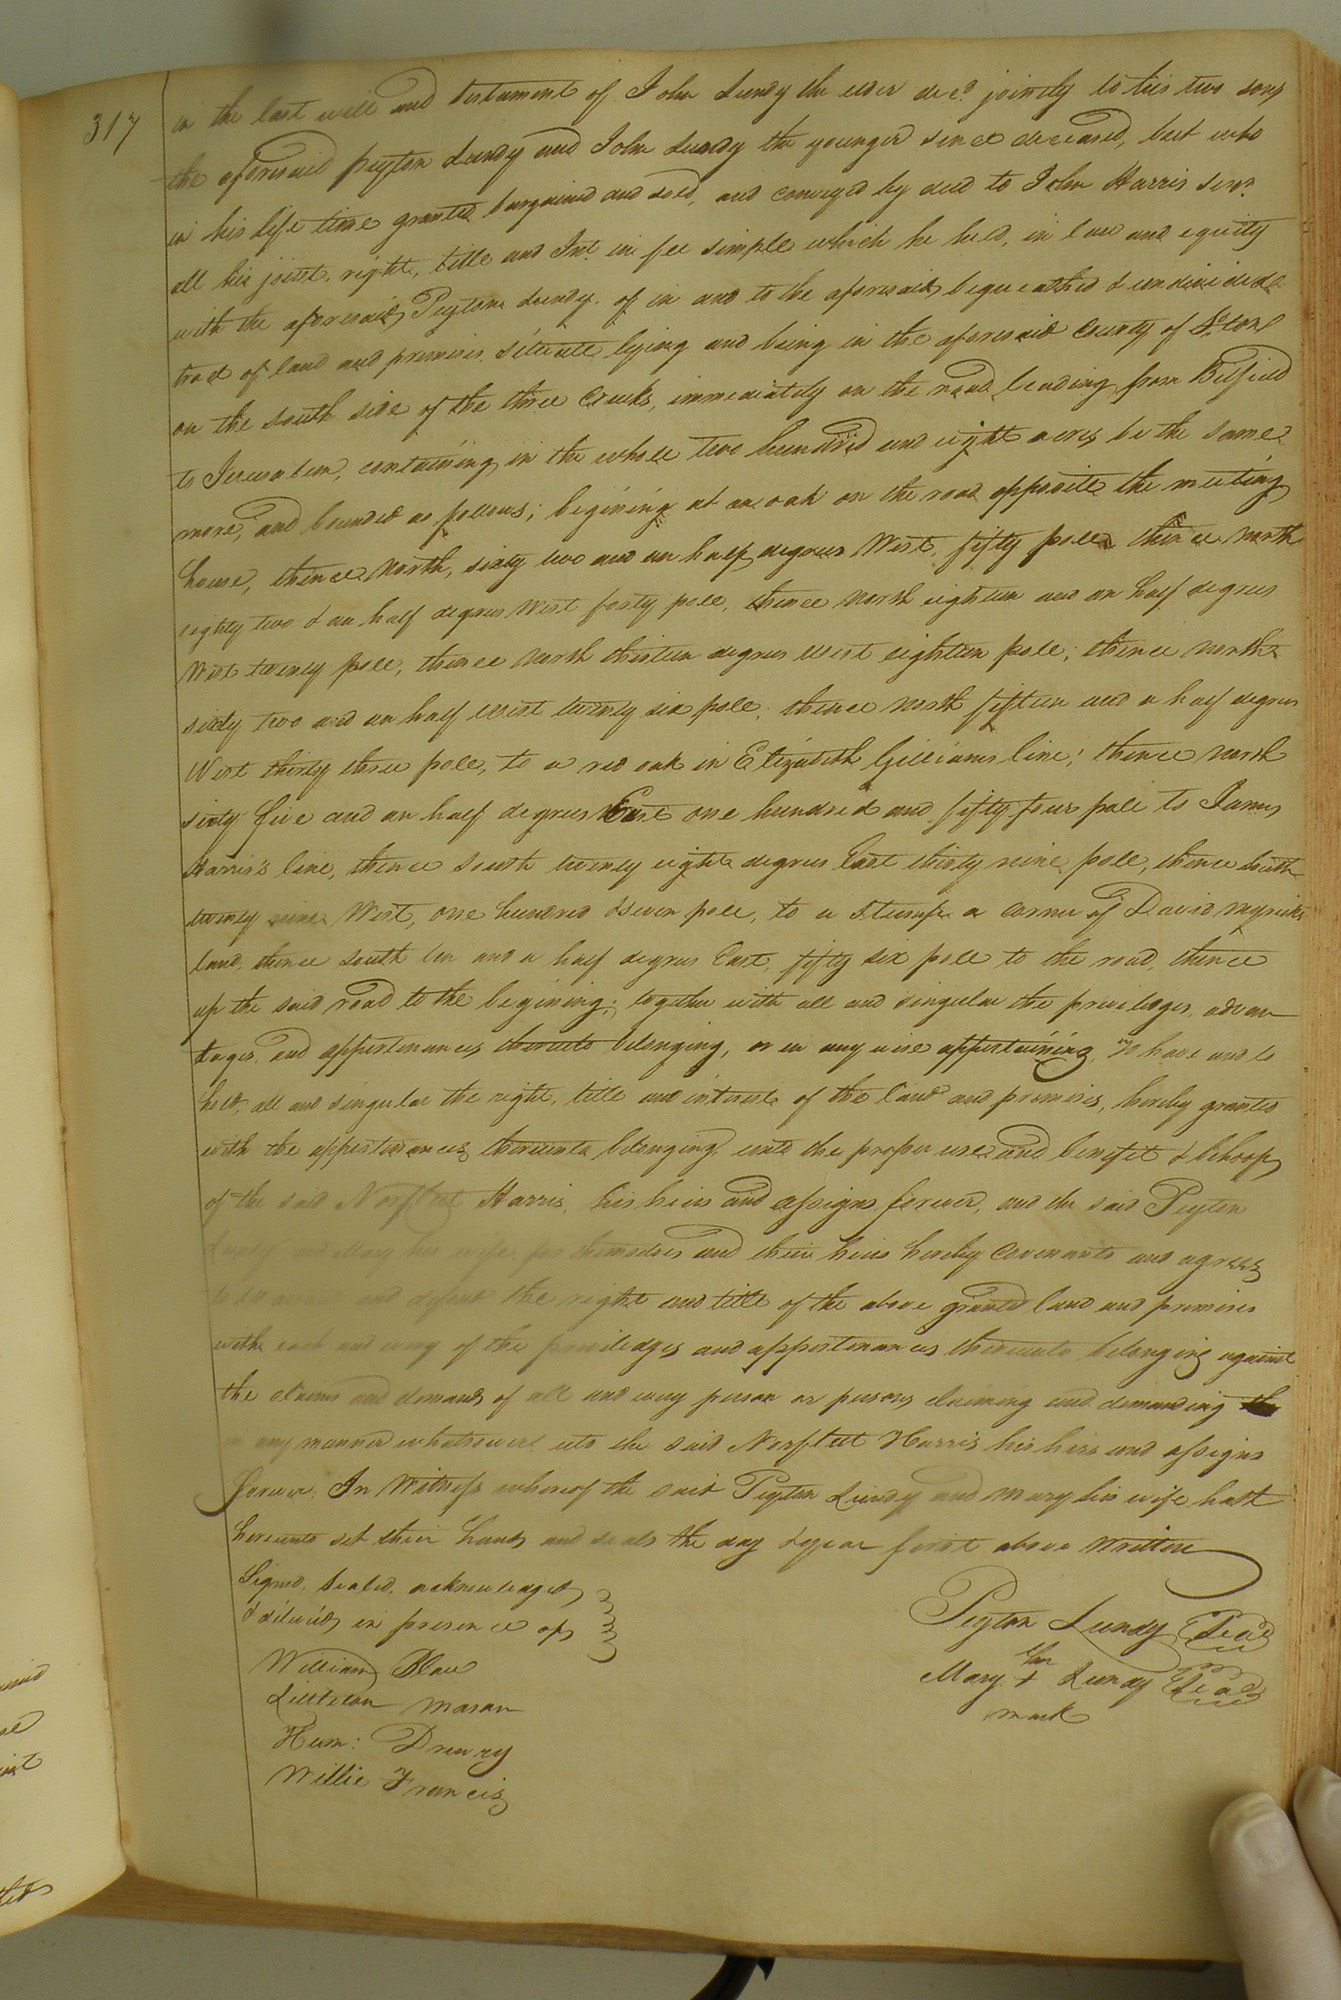 317
in the last will and testament of John Lundy the elder decd. jointly to his two sons
the aforesaid Peyton Lundy and John Lundy the younger since deceased, but who
in his life time granted bargained and sold, and conveyed by deed to John Harris senr.
all his joint, right, title and Int. in fee simple which he held, in law and equity
with the aforesaid, Peyton Lundy, of in and to the aforesaid, bequeathed & undivided
tract of land and premises situate lying and being in the aforesaid County of
on the south side of the three Creeks, immediately on the road leading from Belfield
to Jerusalem, containing in the whole two hundred and eight acres be the same
more, and bounded as follows; begining at an oak on the road opposite the meeting
house, thence North, sixty two and an half degrees West, fifty pole, thence north
eighty two & an half degrees West forty pole, thence North eighteen and an half degrees
West twenty pole, thence North thirteen degrees West eighteen pole, thence north
sixty two and an half West twenty six pole, thence North fifteen and a half degrees
West thirty three pole, to a red oak in Elizabeth Gilliams line; thence north
sixty five and an half degrees East one hundred and fifty four pole to James
Harris's line, thence South twenty eight degrees East thirty nine pole, thence South
twenty nine West, one hundred & seven pole, to a Stump a corner of David Myricks
land, thence South ten and a half degrees East, fifty six pole to the road, thence
up the said road to the begining; together with all and singular the priviledges, advan
tages, and appurtenances thereunto belonging, or in any wise appurtaining, To have and to
hold, all and singular the right, title and interest of the land and premises, hereby granted
with the appurtenances thereunto belonging unto the proper use and benefit & behoof
of the said Norfleet Harris, his heirs and assigns forever, and the said Peyton
Lundy and Mary his wife, for themselves and their heirs hereby covenants and agrees
to warrant and defend the right and title of the above granted land and premises
with each and every of the priviledges and appurtenances thereunto belonging against
the claims and demands of all and every person or persons claiming and demanding
in any manner whatsoever unto the said Norfleet Harris his heirs and assigns
forever. In Witness whereof the said Peyton Lundy and Mary his wife hath
hereunto set their hands and seals the day & year first above written
Signed, Sealed, acknowledged
& delivered in presence of
Peyton Lundy Seal
William Blow
her
Mary + Lundy Seal
mark
Littleton Mason
Hum: Drewry
Willie Francis